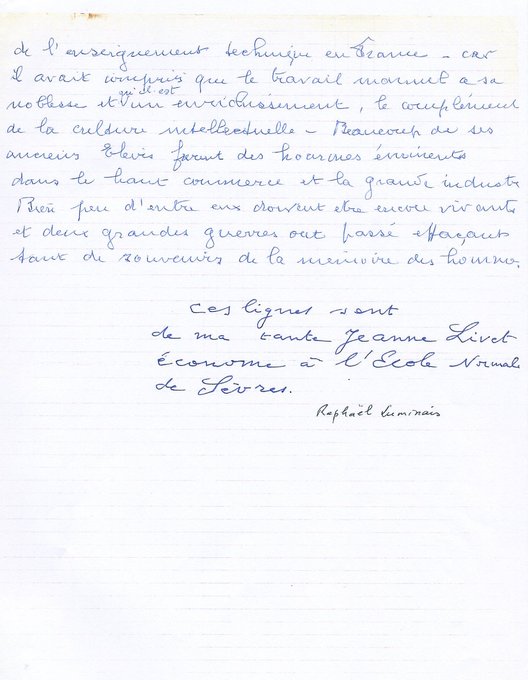 de l'enseignement technique en France - car
il avait compris que le travail manuel a sa
noblesse et qu'il est un enrichissement, le complément
de la culture intellectuelle - Beaucoup de ses
anciens Elèves furent des hommes éminents
dans le haut commerce et la grande industrie
Bien peu d'entre eux doivent etre encore vivants
et deux grandes guerres ont passé effaçant
tant de souvenirs de la mémoire des hommes.
Ces lignes sont
de ma tante Jeanne Livet
économe à l'Ecole Normale
de Sèvres.
Raphaël Luminais